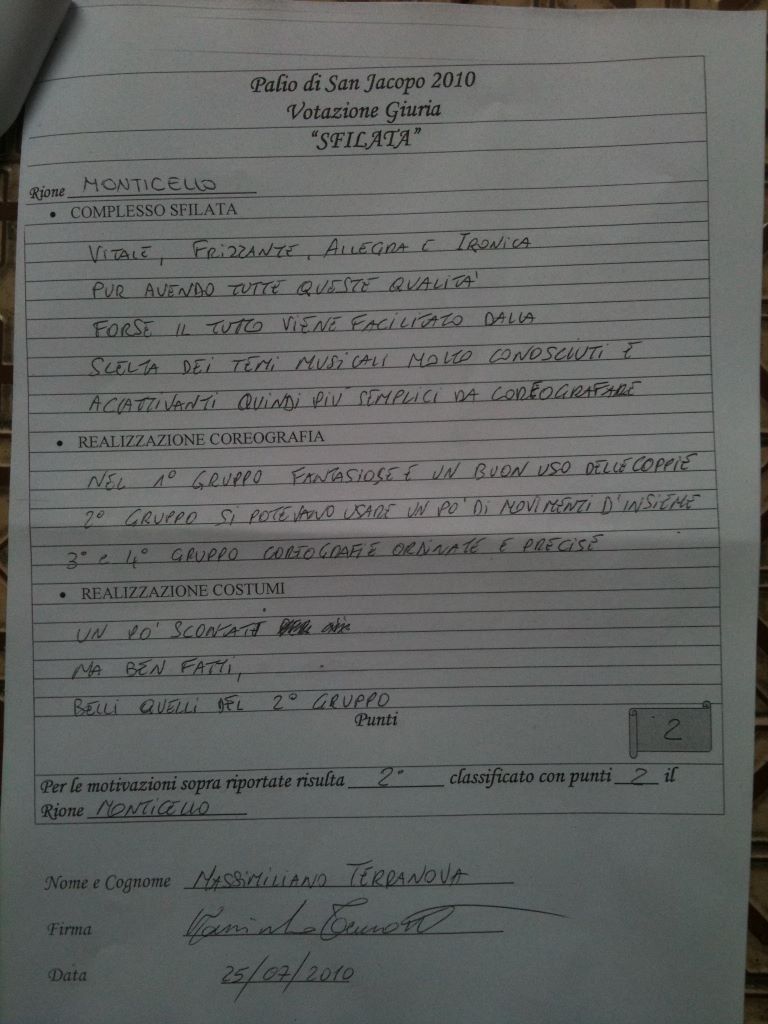 Palio di San Jacopo 2010
Votazione Giuria
"SFILATA"
Rione MONTICELLO
• COMPLESSO SFILATA
VITALE, FRIZZANTE, ALLEGRA E IRONICA
PUR AVENDO TUTTE QUESTE QUALITA'
FORSE IL TUTTO VIENE FACILITATO DALLA
SCELTA DEI TEMI MUSICALI MOLTO CONOSCIUTI E
ACCATTIVANTI QUINDI PIU' SEMPLICI DA COREOGRAFARE
• REALIZZAZIONE COREOGRAFIA
NEL 1° GRUPPO FANTASIOSE E UN BUON USO DELLE COPPIE
2° GRUPPO SI POTEVANO USARE UN PO' DI MOVIMENTI D'INSIEME
3° e 4° GRUPPO COREOGRAFIE ORDINATE E PRECISE
• REALIZZAZIONE COSTUMI
UN PO' SCONTATI
MA BEN FATTI,
BELLI QUELLI DEL 2° GRUPPO
Punti
2
Per le motivazioni sopra riportate risulta 2° classificato con punti 2 il
Rione MONTICELLO
Nome e Cognome MASSIMILIANO TERRANOVA
Firma
Data 25/07/2010